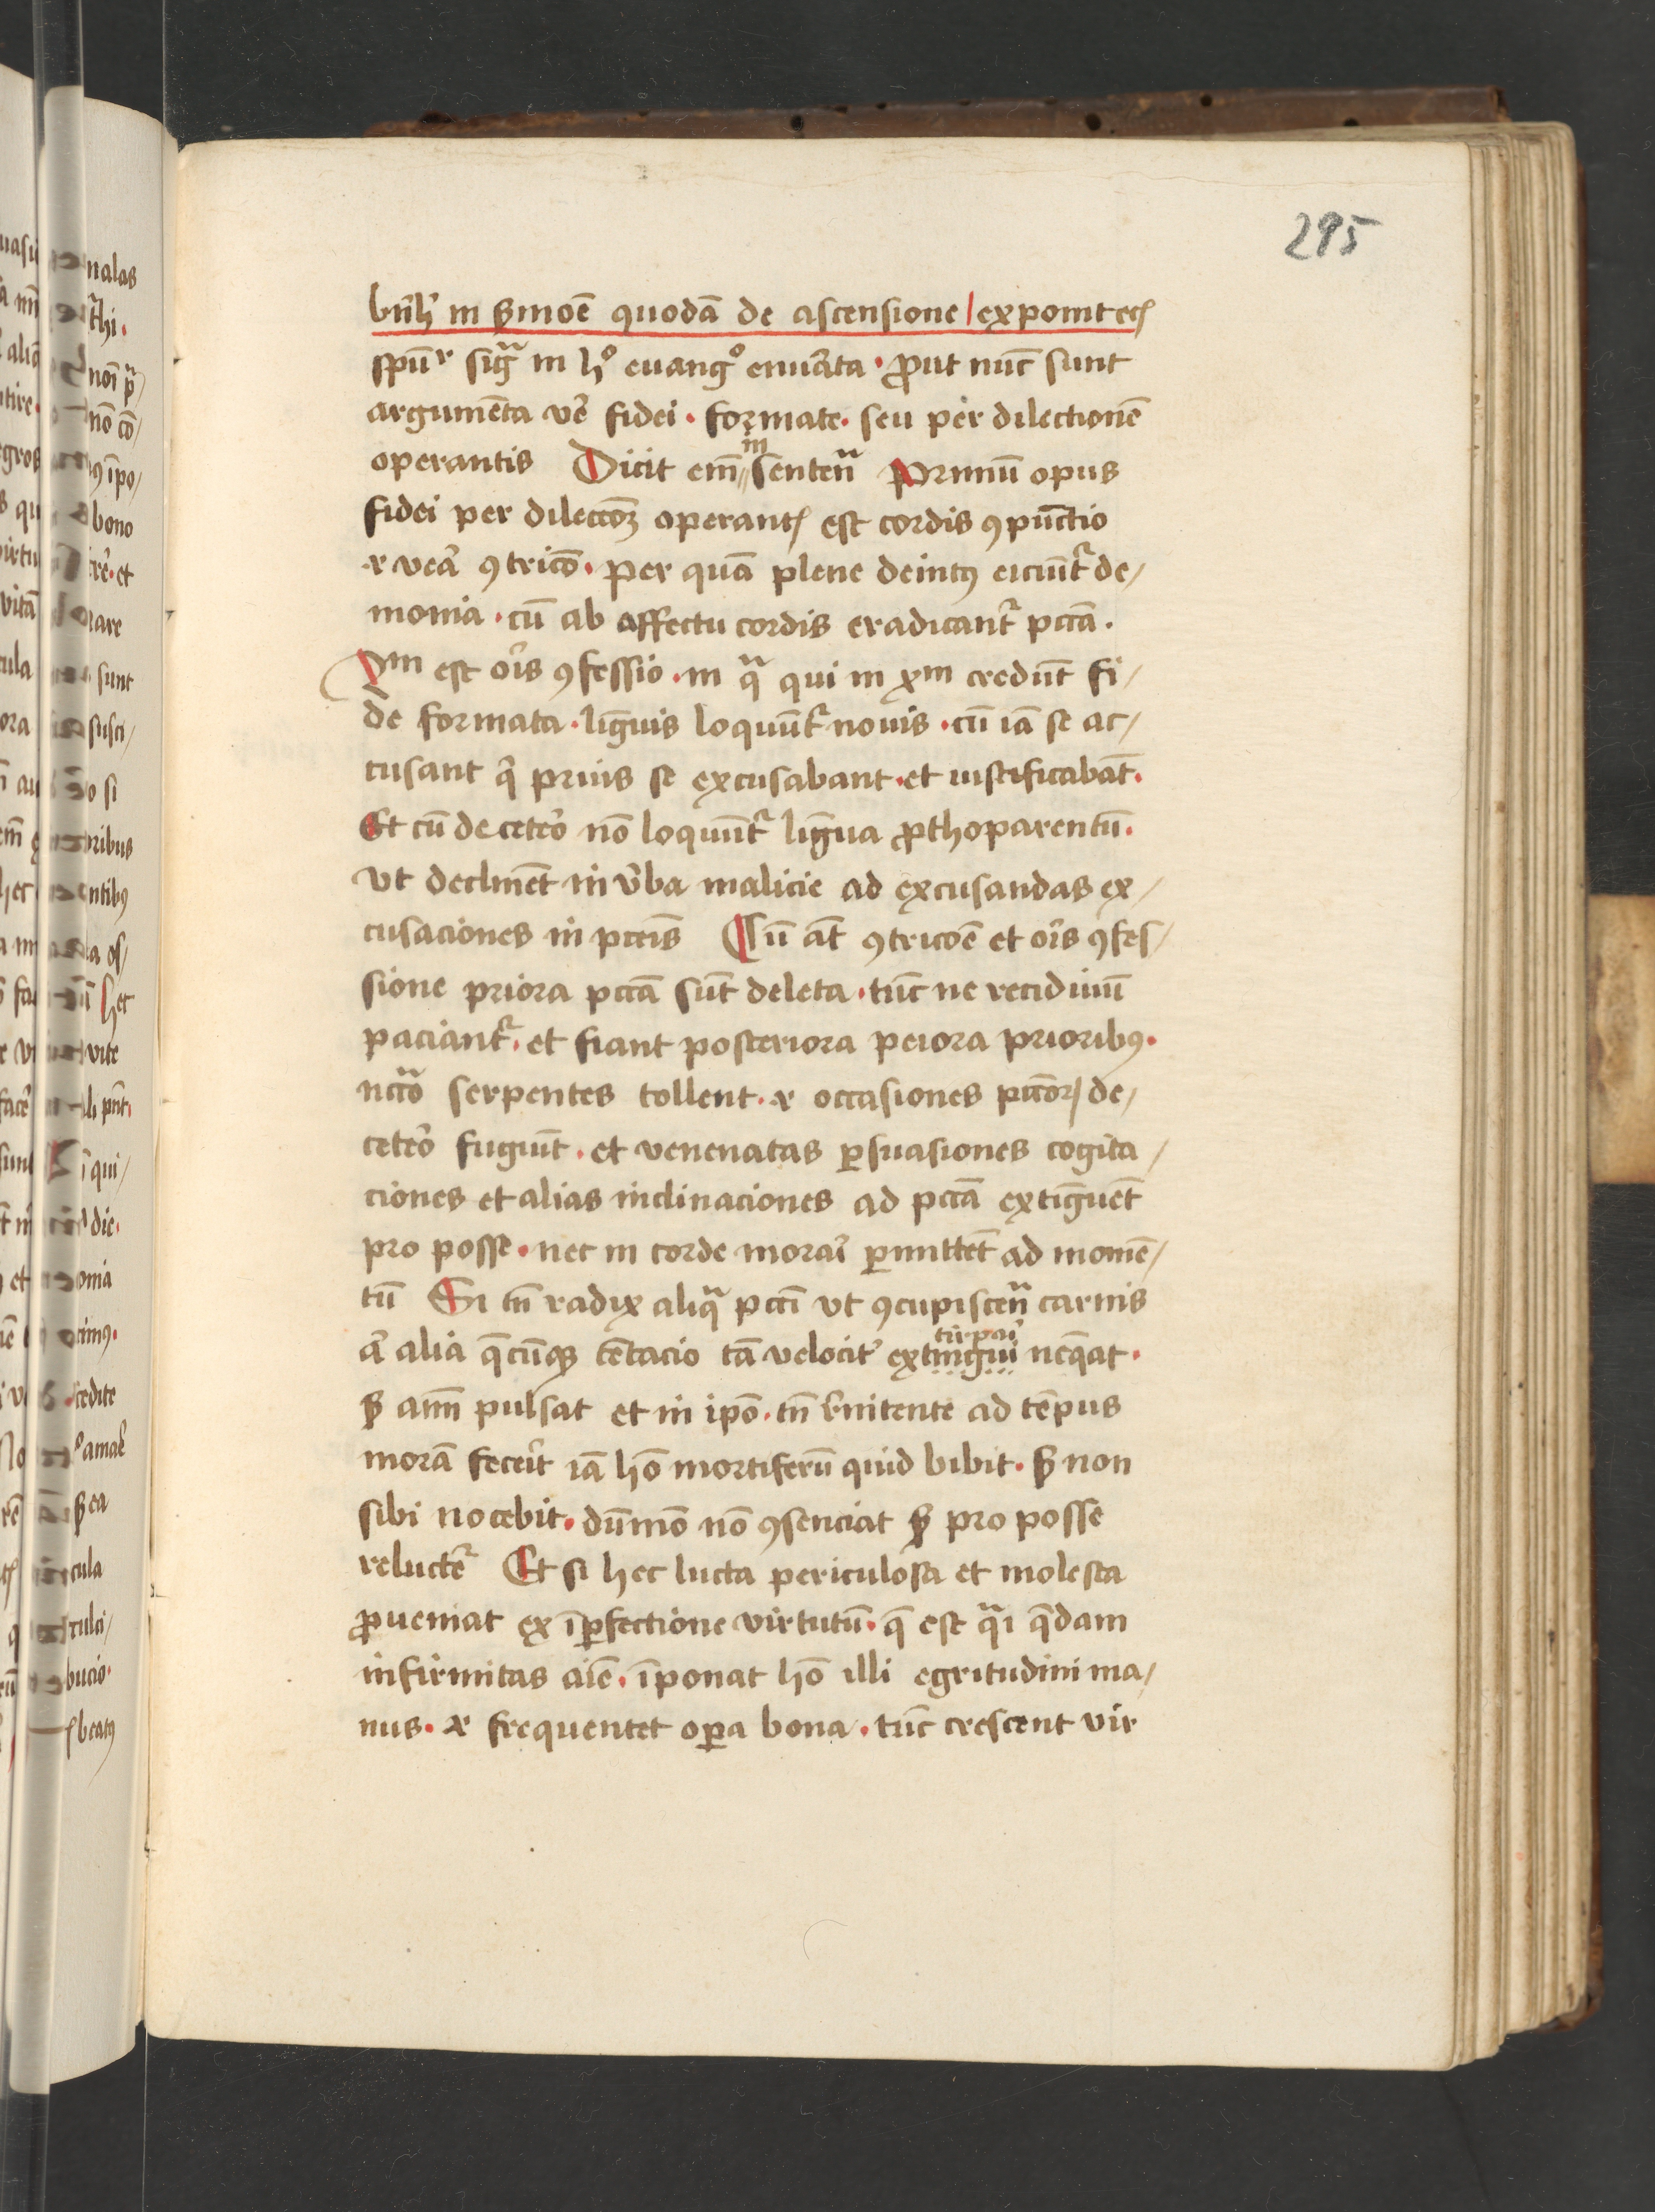 295
bn̄h' in s̄moē quodā de ascensione / exponit eciꝫ
spūr sigͣ in hͦ euangͦ enuc̄ata · ꝓut nūc sunt
argumēta ve͛ fidei · formate · seu per dilectionē
operantis Dicit em̄ in sentenͣ Primū opus
fidei per dileccōꝫ operantꝭ est cordis ꝯpūctio
⁊ vea͛ ꝯtricō · per quā plene deintꝰ eiciūt᷑ de/
monia · cū ab affectu cordis eradicant᷑ pccā ·
2m est oris ꝯfessio · in qͣ qui in xm credūt fi/
de formata · lin̄guis loquūt᷑ nouis · cū iā se ac/
cusant qͥ prius se excusabant · et iustificabāt ·
Et cū de cetero nō loquūt᷑ lin̄gua ꝓthoparentū ·
vt declinēt in v͛ba malicie ad excusandas ex/
cusaciones in pctīs Cū āt ꝯtricōe et oris ꝯfes/
sione priora pccā sūt deleta · tūc ne recidiuū
paciant᷑ · et fiant posteriora peiora prioribꝰ ·
nccͣo serpentes tollent · ⁊ occasiones pccōꝝ de/
cetero fugiūt · et venenatas ꝑsuasiones cogita/
ciones et alias inclinaciones ad pccā extīguēt
pro posse · nec in corde morai͛ ꝑmittēt ad momē/
tū Si tn̄ radix aliqͣ pccī vt ꝯcupiscenͣ carnis
a͛ alia q̄cūqꝫ tētacio tā velocit͛ extingui tirpai͛ neq̄at ·
sꝫ aīm pulsat et in ipō · tn̄ r͛nitente ad tēpus
morā fecerit iā hō mortiferū quid bibit · sꝫ non
sibi nocebit · dūmō nō ꝯsenciat sꝫ pro posse
reluctet᷑ Et si hec lucta periculosa et molesta
ꝓueniat ex īꝑfectione virtutū · q̄ est qͣi q̄dam
infirmitas aīe · īponat hō illi egritudini ma/
nus · ⁊ frequentet oꝑa bona · tūc crescent vir